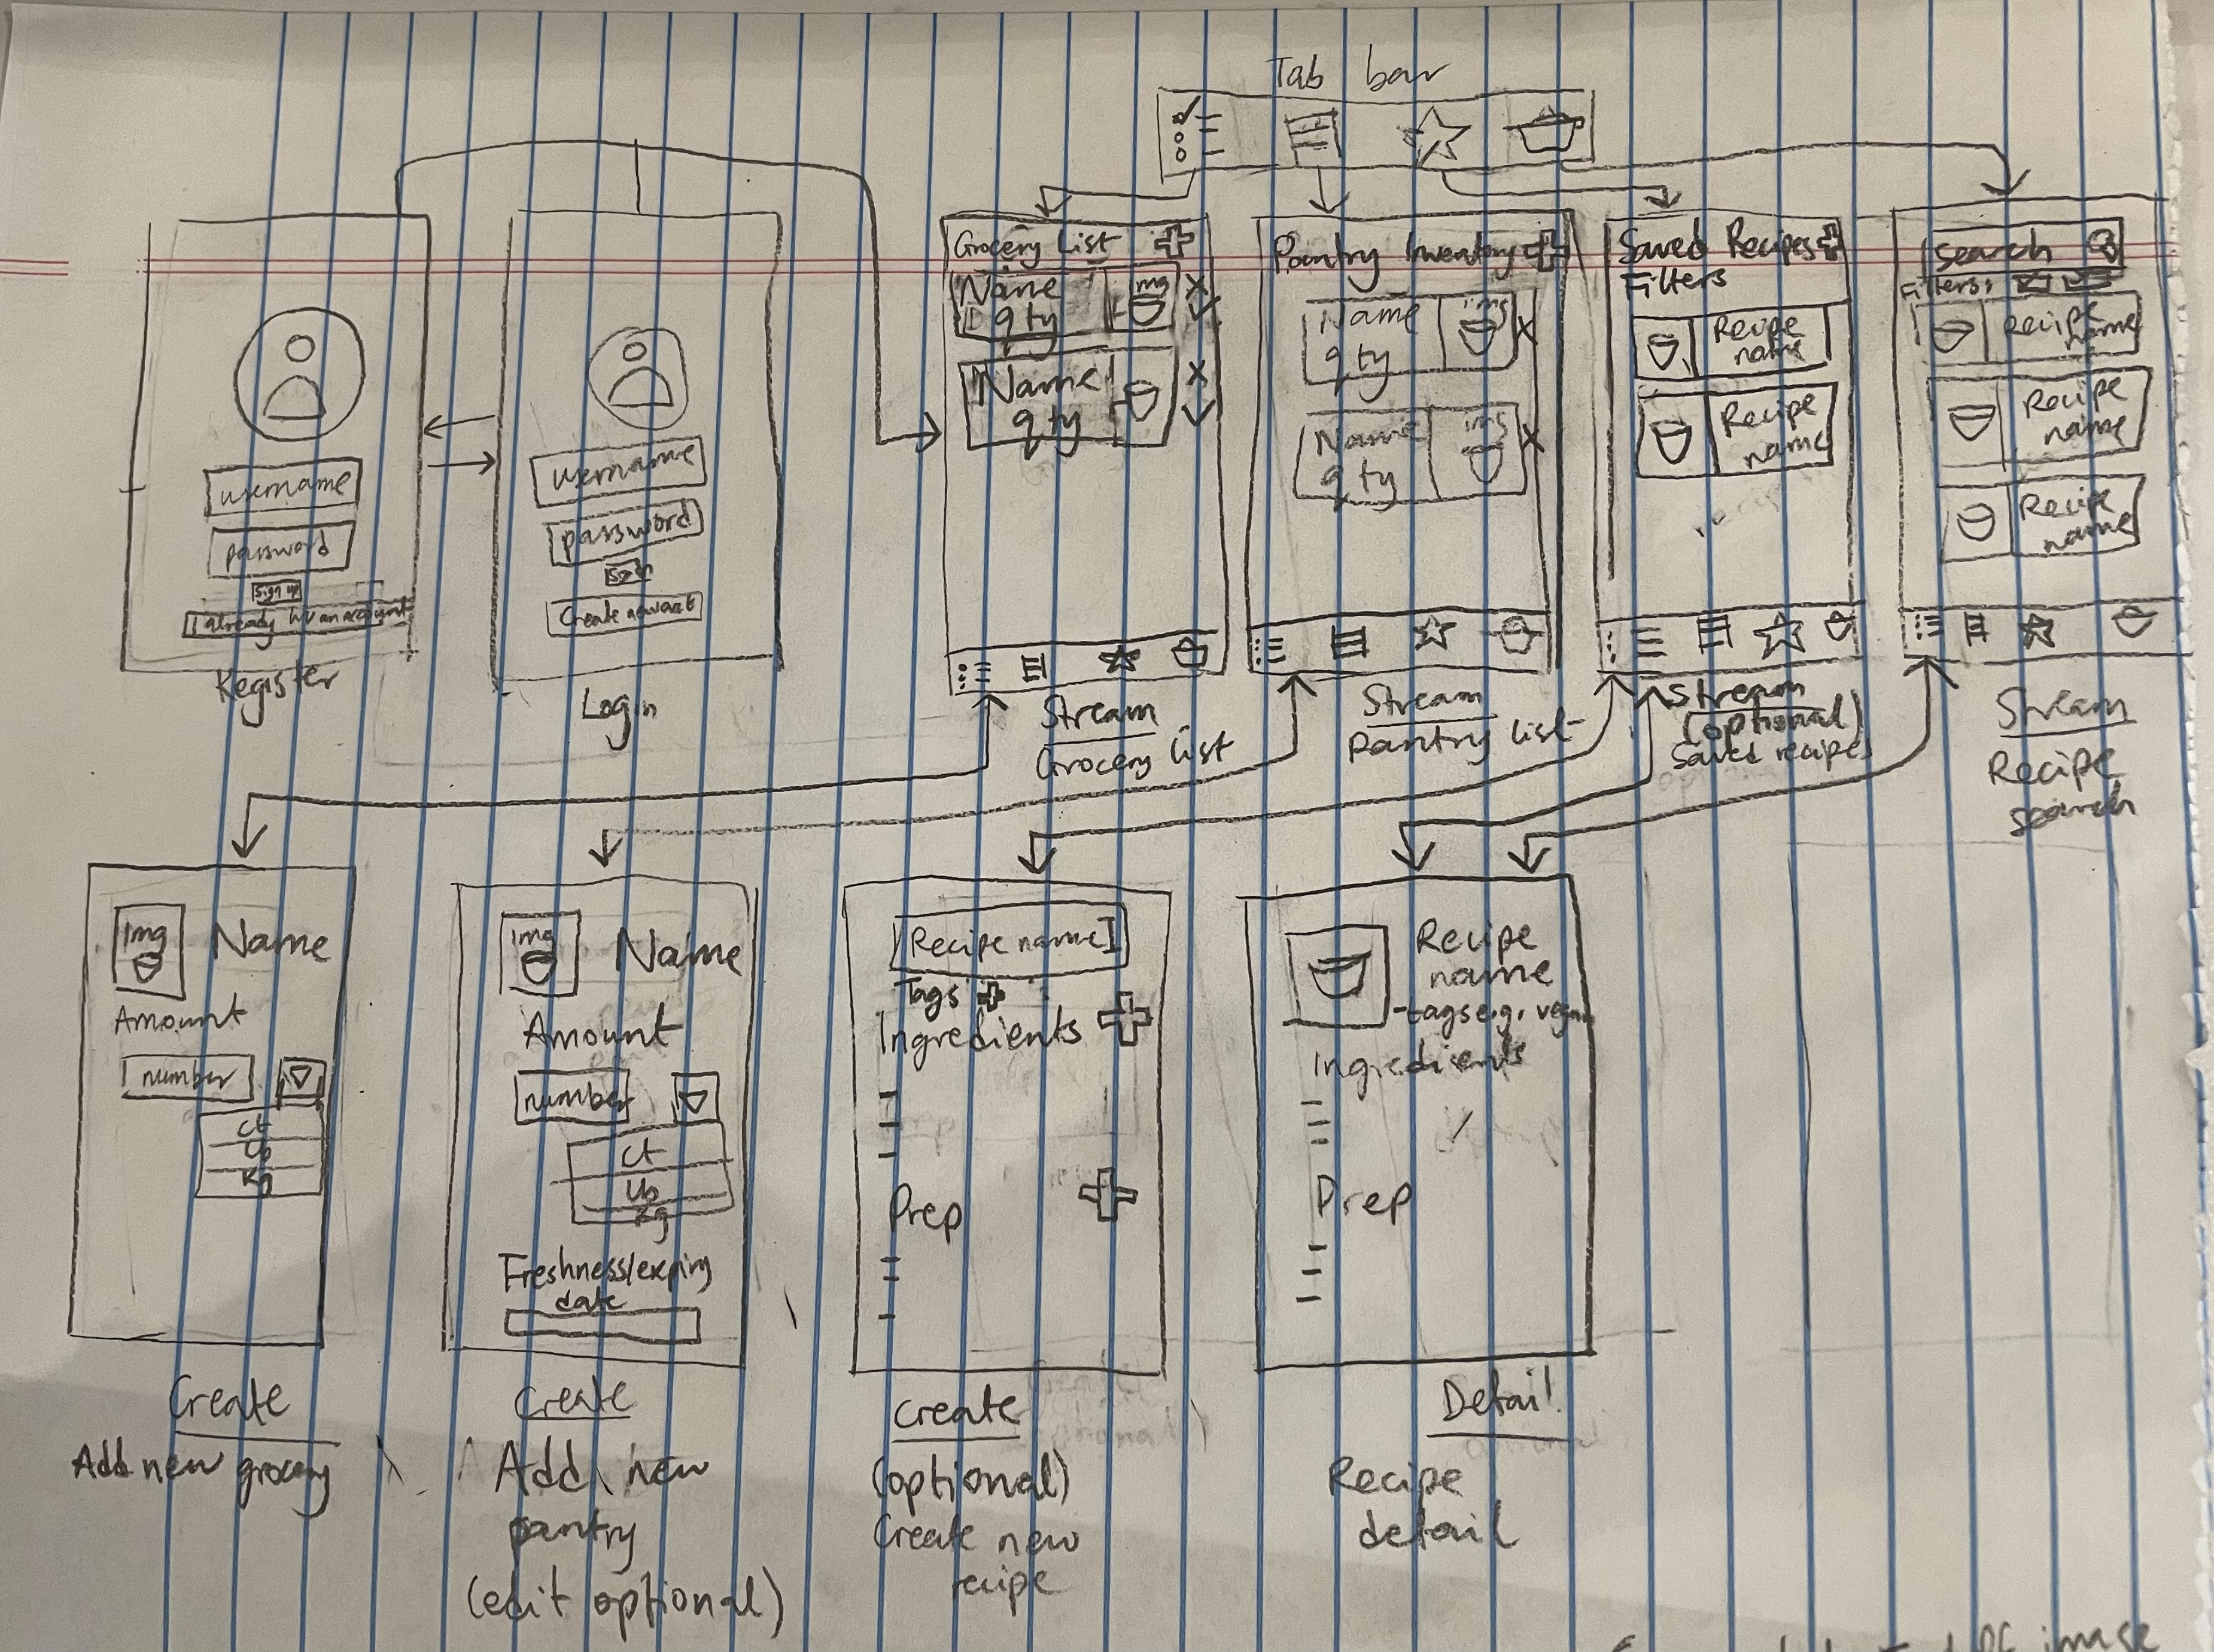 Tab bar
username
password
Sign up
I already hv an account
Register
username
password
Create new acct
Login
Grocery List
Name
qty
img
X
Name
qty
X
Stream
Grocery list
Pantry Inventory
Name
qty
img
X
Name
qty
img
X
Stream
pantry list
Saved Recipes
Filters
Recipe
name
Recipe
name
Stream
(optional)
Saved recipes
Search
Filters:
Recipe
name
Recipe
name
Recipe
name
Stream
Recipe
search
Img
Name
Amount
number
Ct
Lb
Kg
Create
Add new grocery
Img
Name
Amount
number
Ct
Lb
Kg
Freshness/expiry
date
Create
Add new
pantry
(edit optional)
Recipe name
Tags
Ingredients
Prep
Create
(optional)
Create new
recipe
Recipe
name
-tags e.g. vegan
Ingredients
Prep
Detail
Recipe
detail
of image